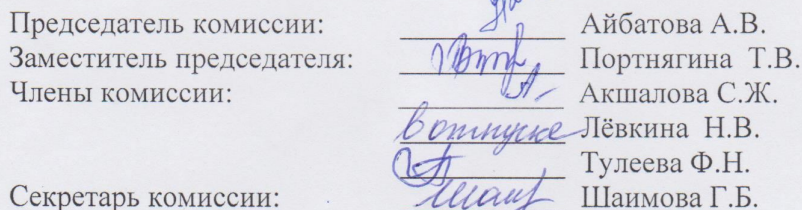 Председатель комиссии: Айбатова А.В.
Заместитель председателя: Портнягина Т.В.
Члены комиссии: Акшалова С.Ж.
в отпуске Лёвкина Н.В.
Тулеева Ф.Н.
Секретарь комиссии: Шаимова Г.Б.